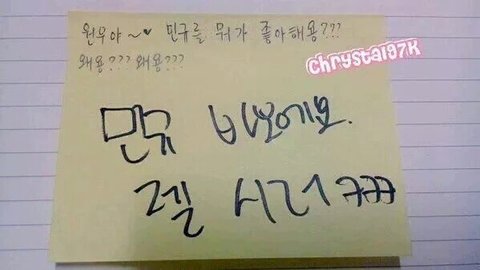 원우야~♥ 민규를 뭐가 좋아해용???
왜용??? 왜용???
chrystal97k
민규 바보에요.
젤 시러ㅋㅋㅋ